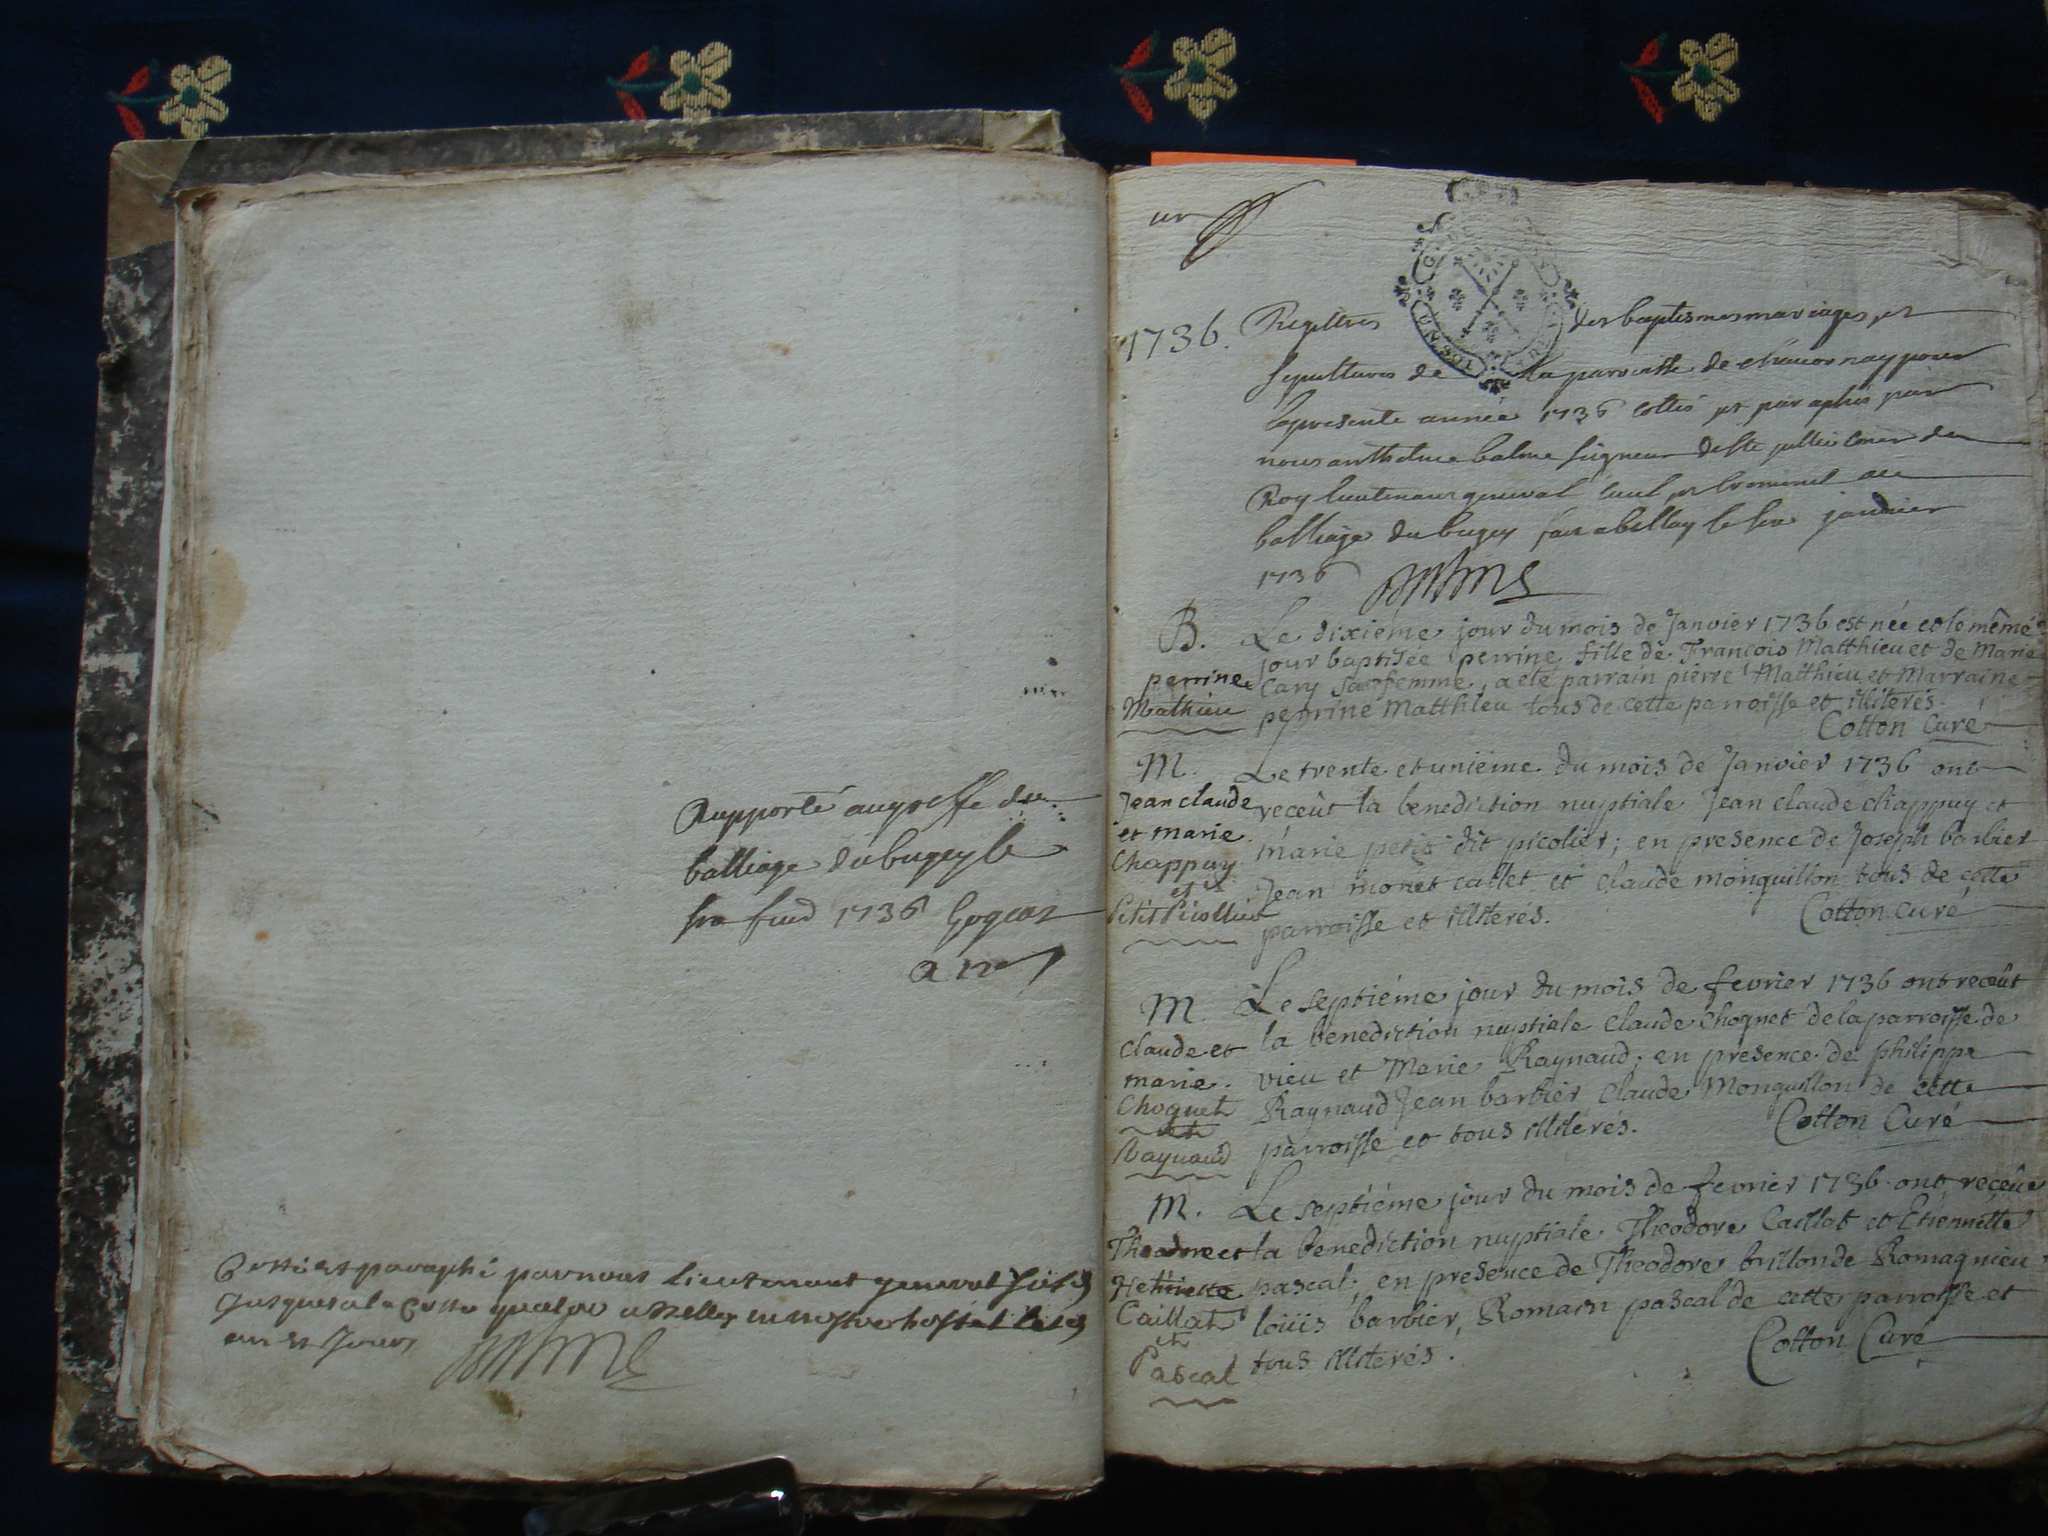 Rapporté au greffe du
balliage du bugey le
1736
et paraphé par nous Lieutenant general
jusques a la
un
1736. Registres des baptesmes mariages et
sepultures de la parroisse de pour
la presente année 1736 cottés et paraphés par
nous anthelme balme seigneur de Ste du
Roy lieutenant general civil et criminel au
balliage du bugey fait a bellay le janvier
1736
Balme
B. Le dixiéme jour du mois de Janvier 1736 est née et le même
jour baptisée perrine fille de François Matthieu et de Marie
perrine Cary sa femme, a eté parrain pierre Matthieu et Marraine
Mathieu perrine Matthieu tous de cette parroisse et illiterés.
Cotton Curé
M. Le trente et uniéme du mois de Janvier 1736 ont
Jean claude receüt la benediction nuptiale Jean claude chappuy et
et marie marie petit dit picolier; en presence de Joseph barbier
Chappuy Jean monet caillet et claude monguillon tous de cette
et
Petit Picollier parroisse et illiterés.
Cotton curé
M. Le septiéme jour du mois de fevrier 1736 ont receüt
Claude et la benediction nuptiale Claude Choqnet de la parroisse de
marie. vieu et Marie Raynaud; en presence de philippe
Choqnet Raynaud Jean barbier Claude Monguillon de cette
et
Raynaud parroisse et tous illiterés.
Cotton Curé
M. Le septiéme jour du mois de fevrier 1736 ont receüe
Theodore et la benediction nuptiale Theodore Caillat et Etiennette
Henriette pascal; en presence de Theodore brillon de Romagnieu
Caillat loüis barbier, Romain pascal de cette parroisse et
et
Pascal tous illiterés.
Cotton Curé